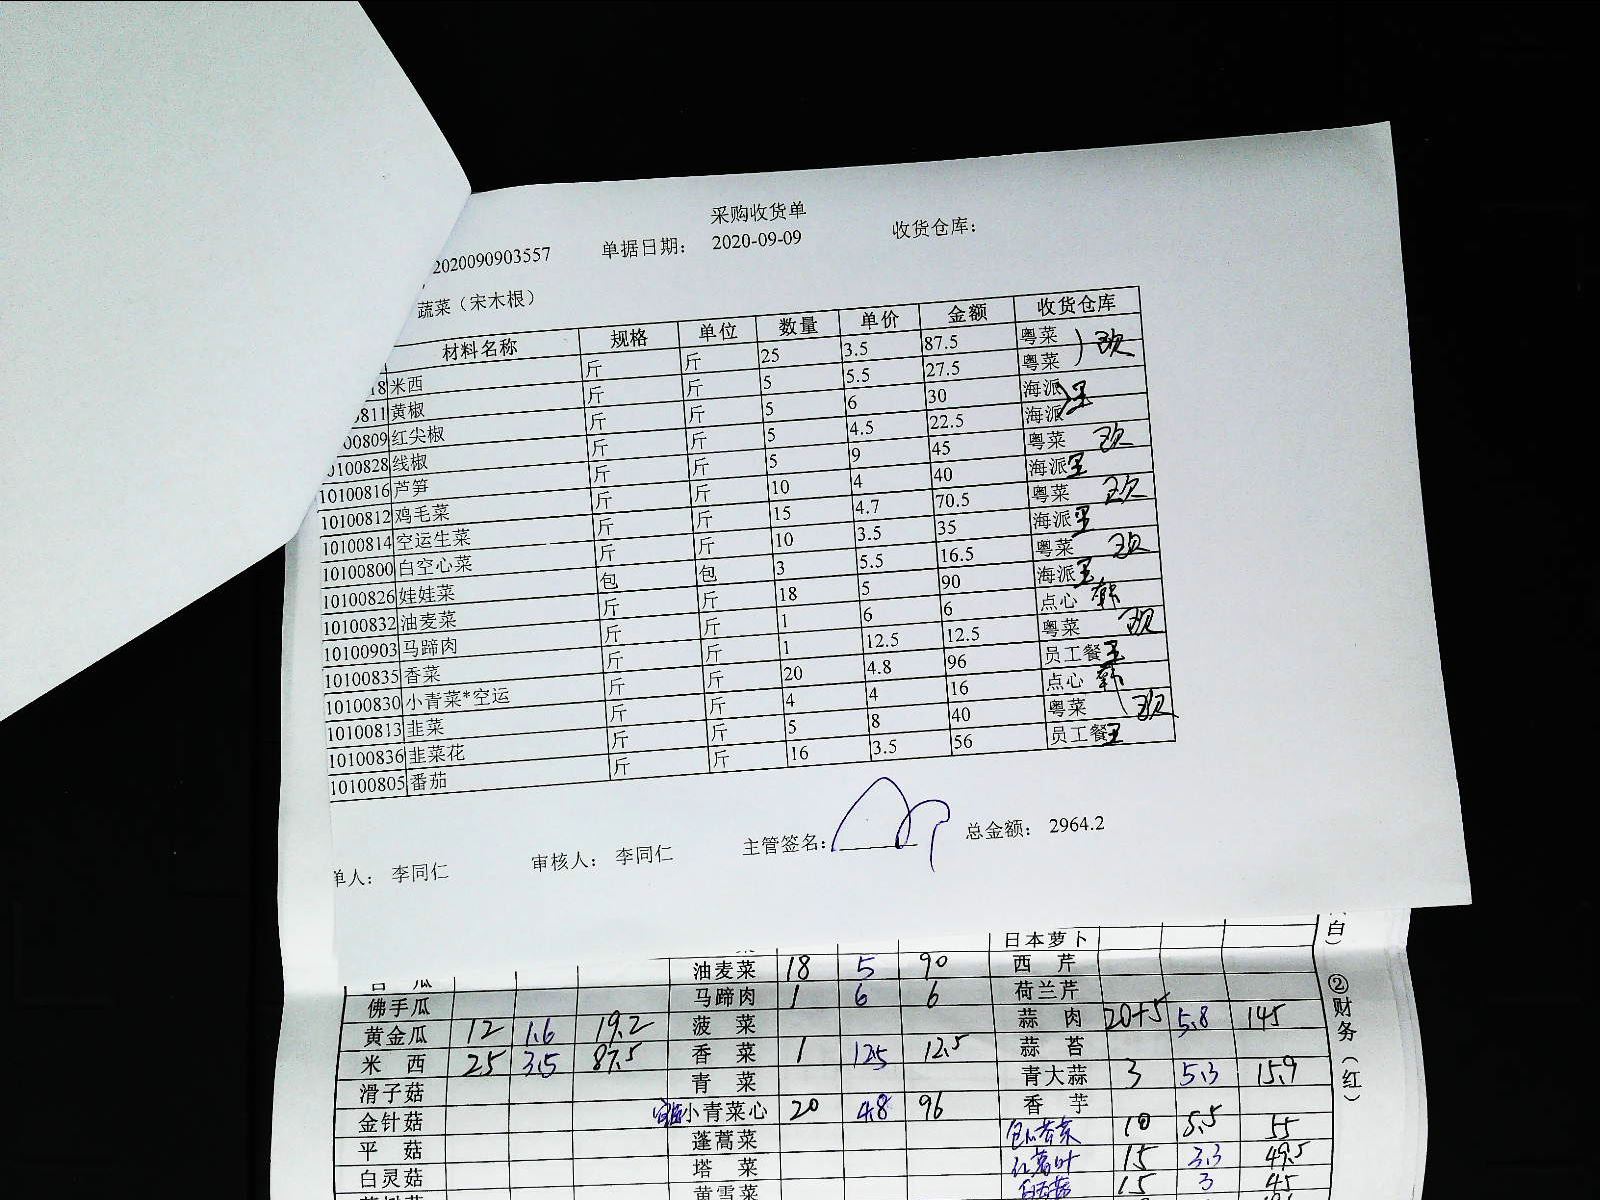 采购收货单
2020090903557 单据日期： 2020-09-09 收货仓库：
蔬菜（宋木根）
材料名称 规格 单位 数量 单价 金额 收货仓库
18 米西 斤 斤 25 3.5 87.5 粤菜
811 黄椒 斤 斤 5 5.5 27.5 粤菜
00809 红尖椒 斤 斤 5 6 30 海派
0100828 线椒 斤 斤 5 4.5 22.5 海派
10100816 芦笋 斤 斤 5 9 45 粤菜
10100812 鸡毛菜 斤 斤 10 4 40 海派
10100814 空运生菜 斤 斤 15 4.7 70.5 粤菜
10100800 白空心菜 斤 斤 10 3.5 35 海派
10100826 娃娃菜 包 包 3 5.5 16.5 粤菜
10100832 油麦菜 斤 斤 18 5 90 海派
10100903 马蹄肉 斤 斤 1 6 6 点心
10100835 香菜 斤 斤 1 12.5 12.5 粤菜
10100830 小青菜*空运 斤 斤 20 4.8 96 员工餐
10100813 韭菜 斤 斤 4 4 16 点心
10100836 韭菜花 斤 斤 5 8 40 粤菜
10100805 番茄 斤 斤 16 3.5 56 员工餐
单人： 李同仁 审核人： 李同仁 主管签名： 总金额： 2964.2
日本萝卜
油麦菜 18 5 90 西芹
佛手瓜 马蹄肉 1 6 6 荷兰芹
黄金瓜 12 1.6 19.2 菠菜 蒜肉 20+5 5.8 145
米西 25 3.5 87.5 香菜 1 12.5 12.5 蒜苔
滑子菇 青菜 青大蒜 3 5.3 15.9
金针菇 小青菜心 20 4.8 96 香芋
平菇 蓬蒿菜 10 5.5 55
白灵菇 塔菜 15 3.3 49.5
黄雪菜 15 3 45
白）
②财务（红）